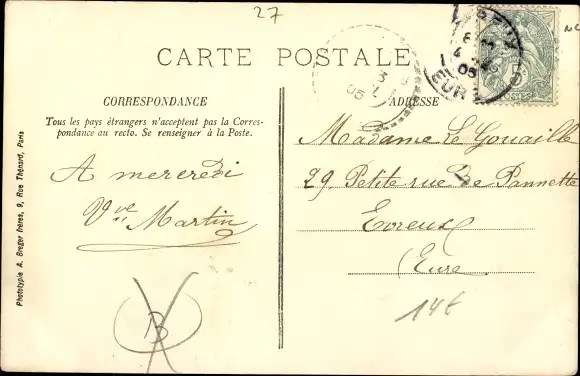 27
CARTE POSTALE
CORRESPONDANCE
Tous les pays étrangers n'acceptent pas la Corres-
pondance au recto. Se renseigner à la Poste.
A mercredi
Vve Martin
B
ADRESSE
Madame Le Gouaille
29, Petite rue de Pannette
Evreux
(Eure
14€
3
05
EUR
Phototypie A. Breger Frères, 9, Rue Thénard, Paris